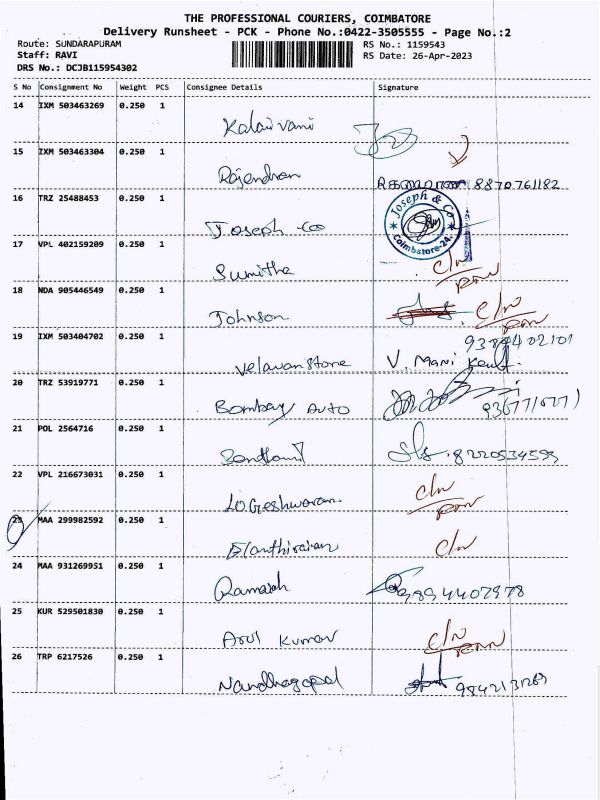 THE PROFESSIONAL COURIERS, COIMBATORE
Delivery Runsheet - PCK - Phone No.:0422-3505555 - Page No.:2
Route: SUNDARAPURAM RS No.: 1159543
Staff: RAVI RS Date: 26-Apr-2023
DRS No.: DCJB115954302
S No Consignment No Weight PCS Consignee Details Signature
14 IXM 503463269 0.250 1
Kalaivani
15 IXM 503463304 0.250 1
Rajendran 8870761182
16 TRZ 25488453 0.250 1
Joseph & Co
Joseph Co
Coimbatore-24.
17 VPL 402159209 0.250 1
Sumitha c/n
18 NDA 905446549 0.250 1
Johnson c/n
19 IXM 503404702 0.250 1
Velavan Stone V. Mani
20 TRZ 53919771 0.250 1
Bombay Auto
21 POL 2564716 0.250 1
22 VPL 216673031 0.250 1
Logeshwaran c/n
23 MAA 299982592 0.250 1
c/n
24 MAA 931269951 0.250 1
Ramaiah 9894407978
25 KUR 529501830 0.250 1
Arul Kumar c/n
26 TRP 6217526 0.250 1
Nandhagopal